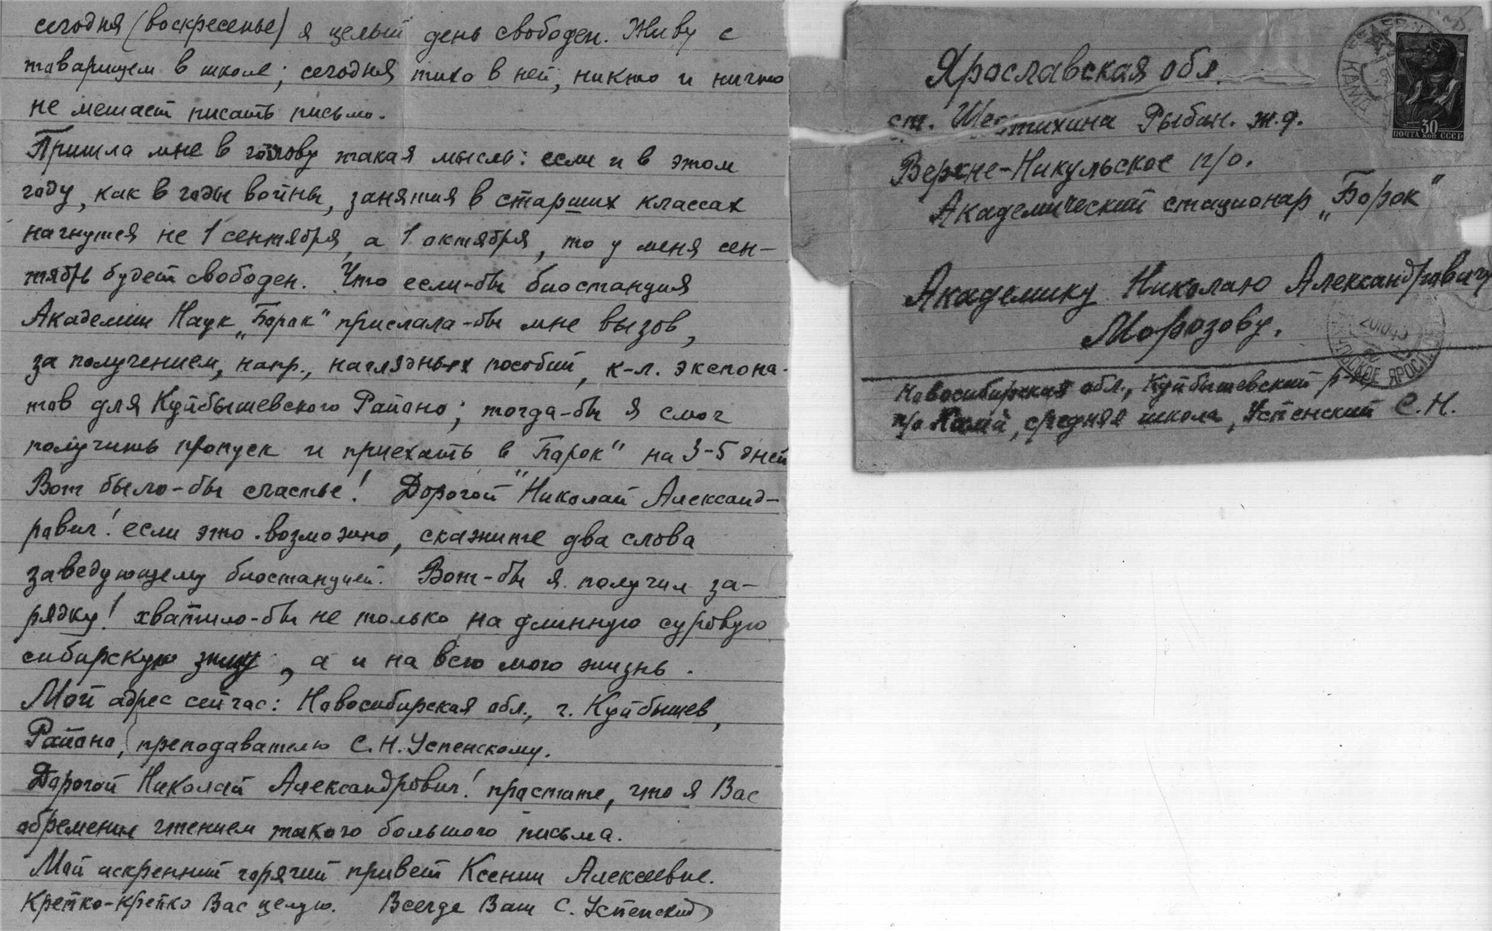 сегодня (воскресенье) я целый день свободен. Живу с
товарищем в школе; сегодня тихо в ней, никто и ничто
не мешает писать письмо.
Пришла мне в голову такая мысль: если и в этом
году, как в годы войны, занятия в старших классах
начнутся не 1 сентября, а 1 октября, то у меня сен-
тябрь будет свободен. Что если-бы биостанция
Академии Наук „Борок" прислала-бы мне вызов,
за получением, напр., наглядных пособий, к-л. экспона-
тов для Куйбышевского Районо; тогда-бы я смог
получить пропуск и приехать в „Борок" на 3-5 дней
Вот было-бы счастье! Дорогой Николай Александ-
рович! если это возможно, скажите два слова
заведующему биостанцией. Вот-бы я получил за-
рядку! хватило-бы не только на длинную суровую
сибирскую зиму, а и на всю мою жизнь.
Мой адрес сейчас: Новосибирская обл., г. Куйбышев,
Районо, преподавателю С.Н. Успенскому.
Дорогой Николай Александрович! простите, что я Вас
обременил чтением такого большого письма.
Мой искренний горячий привет Ксении Алексеевне.
Крепко-крепко Вас целую. Всегда Ваш С. Успенский
Ярославская обл.
ст. Шестихина Рыбин. ж.д.
Верхне-Никульское п/о.
Академический стационар „Борок"
Академику Николаю Александровичу
Морозову.
Новосибирская обл., Куйбышевский р-н,
п/о Кама, средняя школа, Успенский С.Н.
30
ПОЧТА КОП СССР